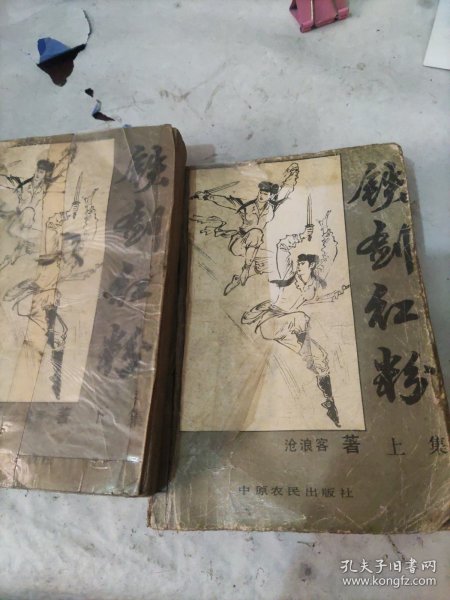 铁剑红粉
著 下 集
铁剑红粉
沧浪客 著 上 集
中原农民出版社
孔夫子旧书网
www.kongfz.com